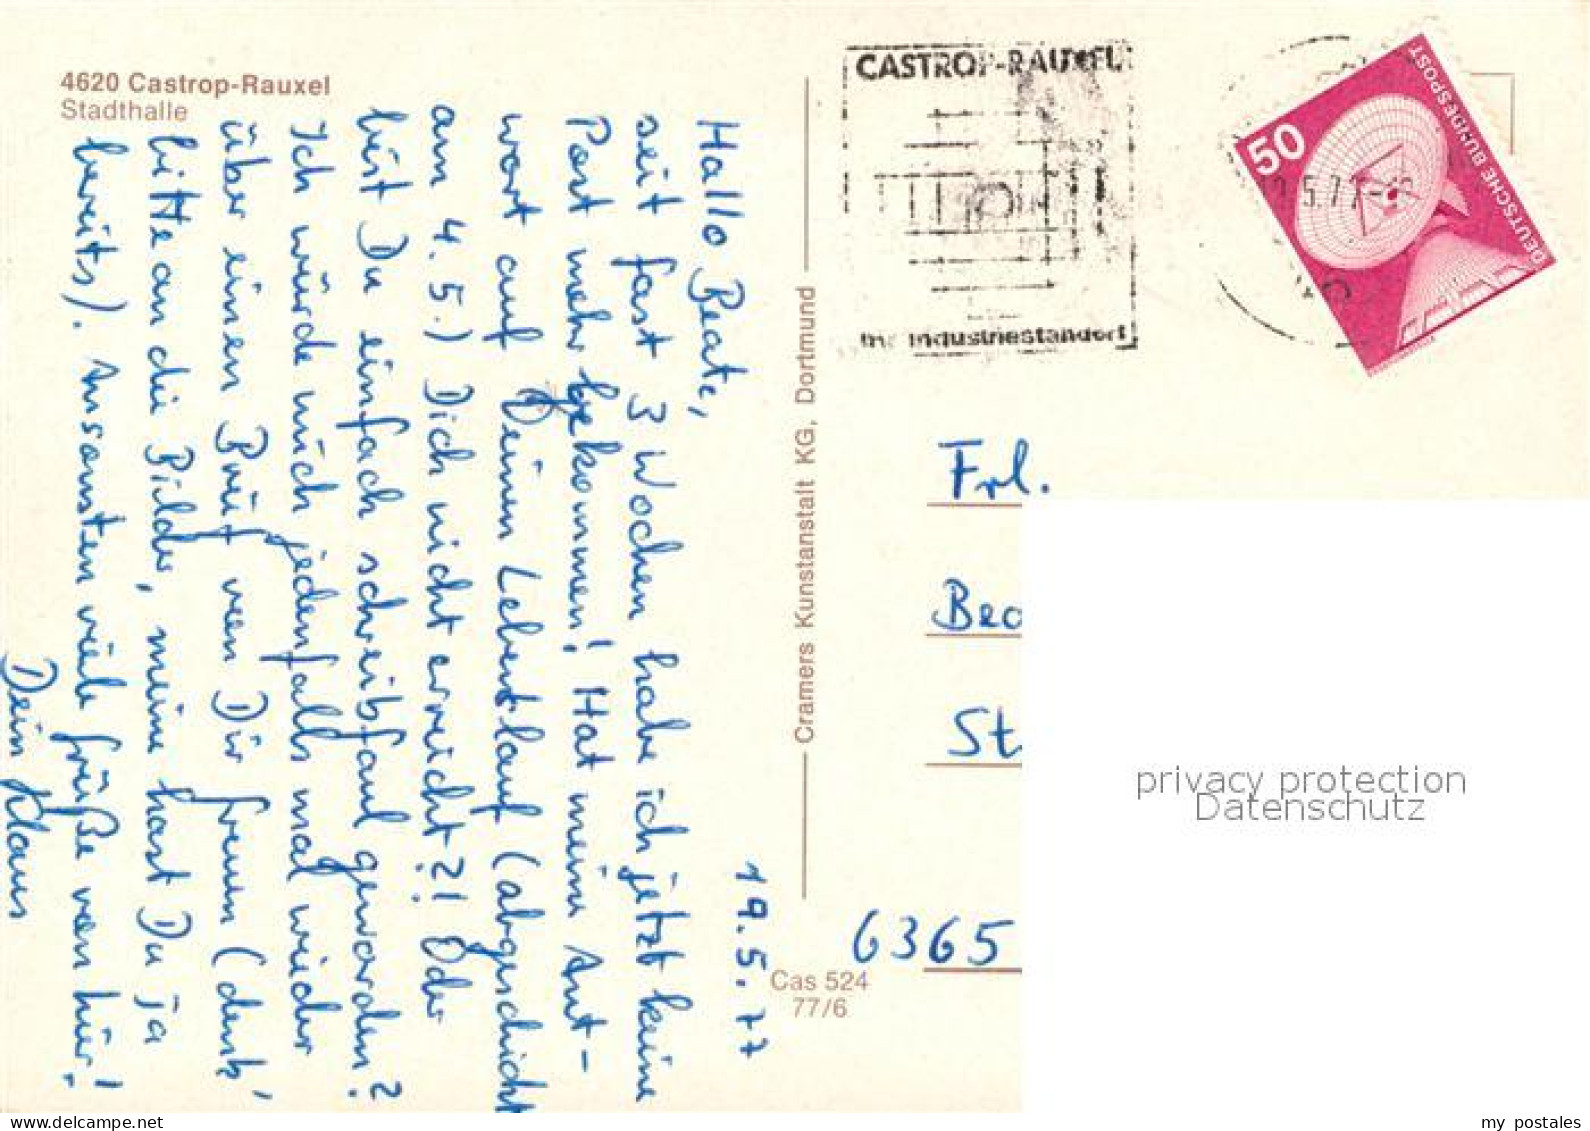 4620 Castrop-Rauxel
Stadthalle
19.5.77
Hallo Beate,
seit fast 3 Wochen habe ich jetzt keine
Post mehr bekommen! Hat meine Ant-
wort auf Deinen Lebenslauf (abgeschickt
am 4.5.) Dich nicht erreicht?! Oder
bist Du einfach schreibfaul geworden?
Ich würde mich jedenfalls mal wieder
über einen Brief von Dir freuen (denk'
bitte an die Bilder, meine hast Du ja
bereits). Ansonsten viele Grüße von hier!
Dein Klaus
Cramers Kunstanstalt KG, Dortmund
Cas 524
77/6
CASTROP-RAUXEL
Industriestandort
50
DEUTSCHE BUNDESPOST
5.77
Frl.
Bea
St
6365
privacy protection
Datenschutz
www.delcampe.net
my_postales